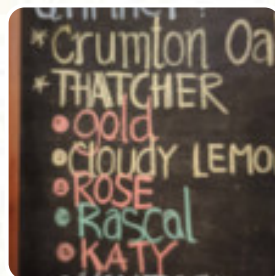 * Crumton Oa
* THATCHER
Gold
Cloudy LEMO
ROSE
Rascal
KATY